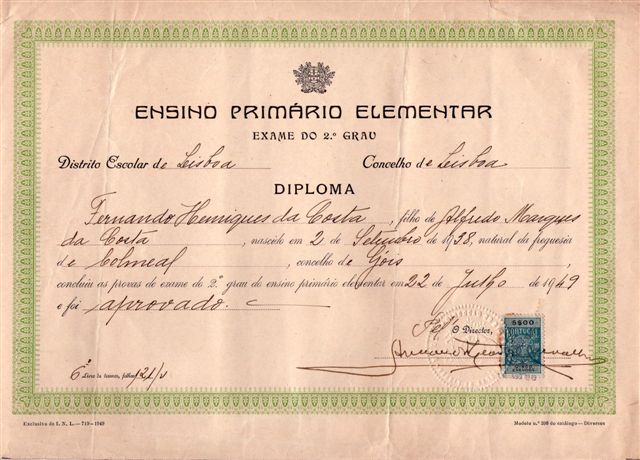 ENSINO PRIMÁRIO ELEMENTAR
EXAME DO 2.º GRAU
Distrito Escolar de Lisboa Concelho de Lisboa
DIPLOMA
Fernando Henriques da Costa, filho de Alfredo Marques
da Costa, nascido em 2 de Setembro de 1938, natural da freguesia
de Colmeal, concelho de Gois
concluiu as provas de exame do 2.º grau do ensino primário elementar em 22 de Julho de 1949
e foi aprovado.
Pel' O Director,
5$00
PORTUGAL
6º Livro de termos, folhas 121/v
Exclusivo da I. N. L. — 719-1949 Modelo n.º 598 do catálogo — Diversos